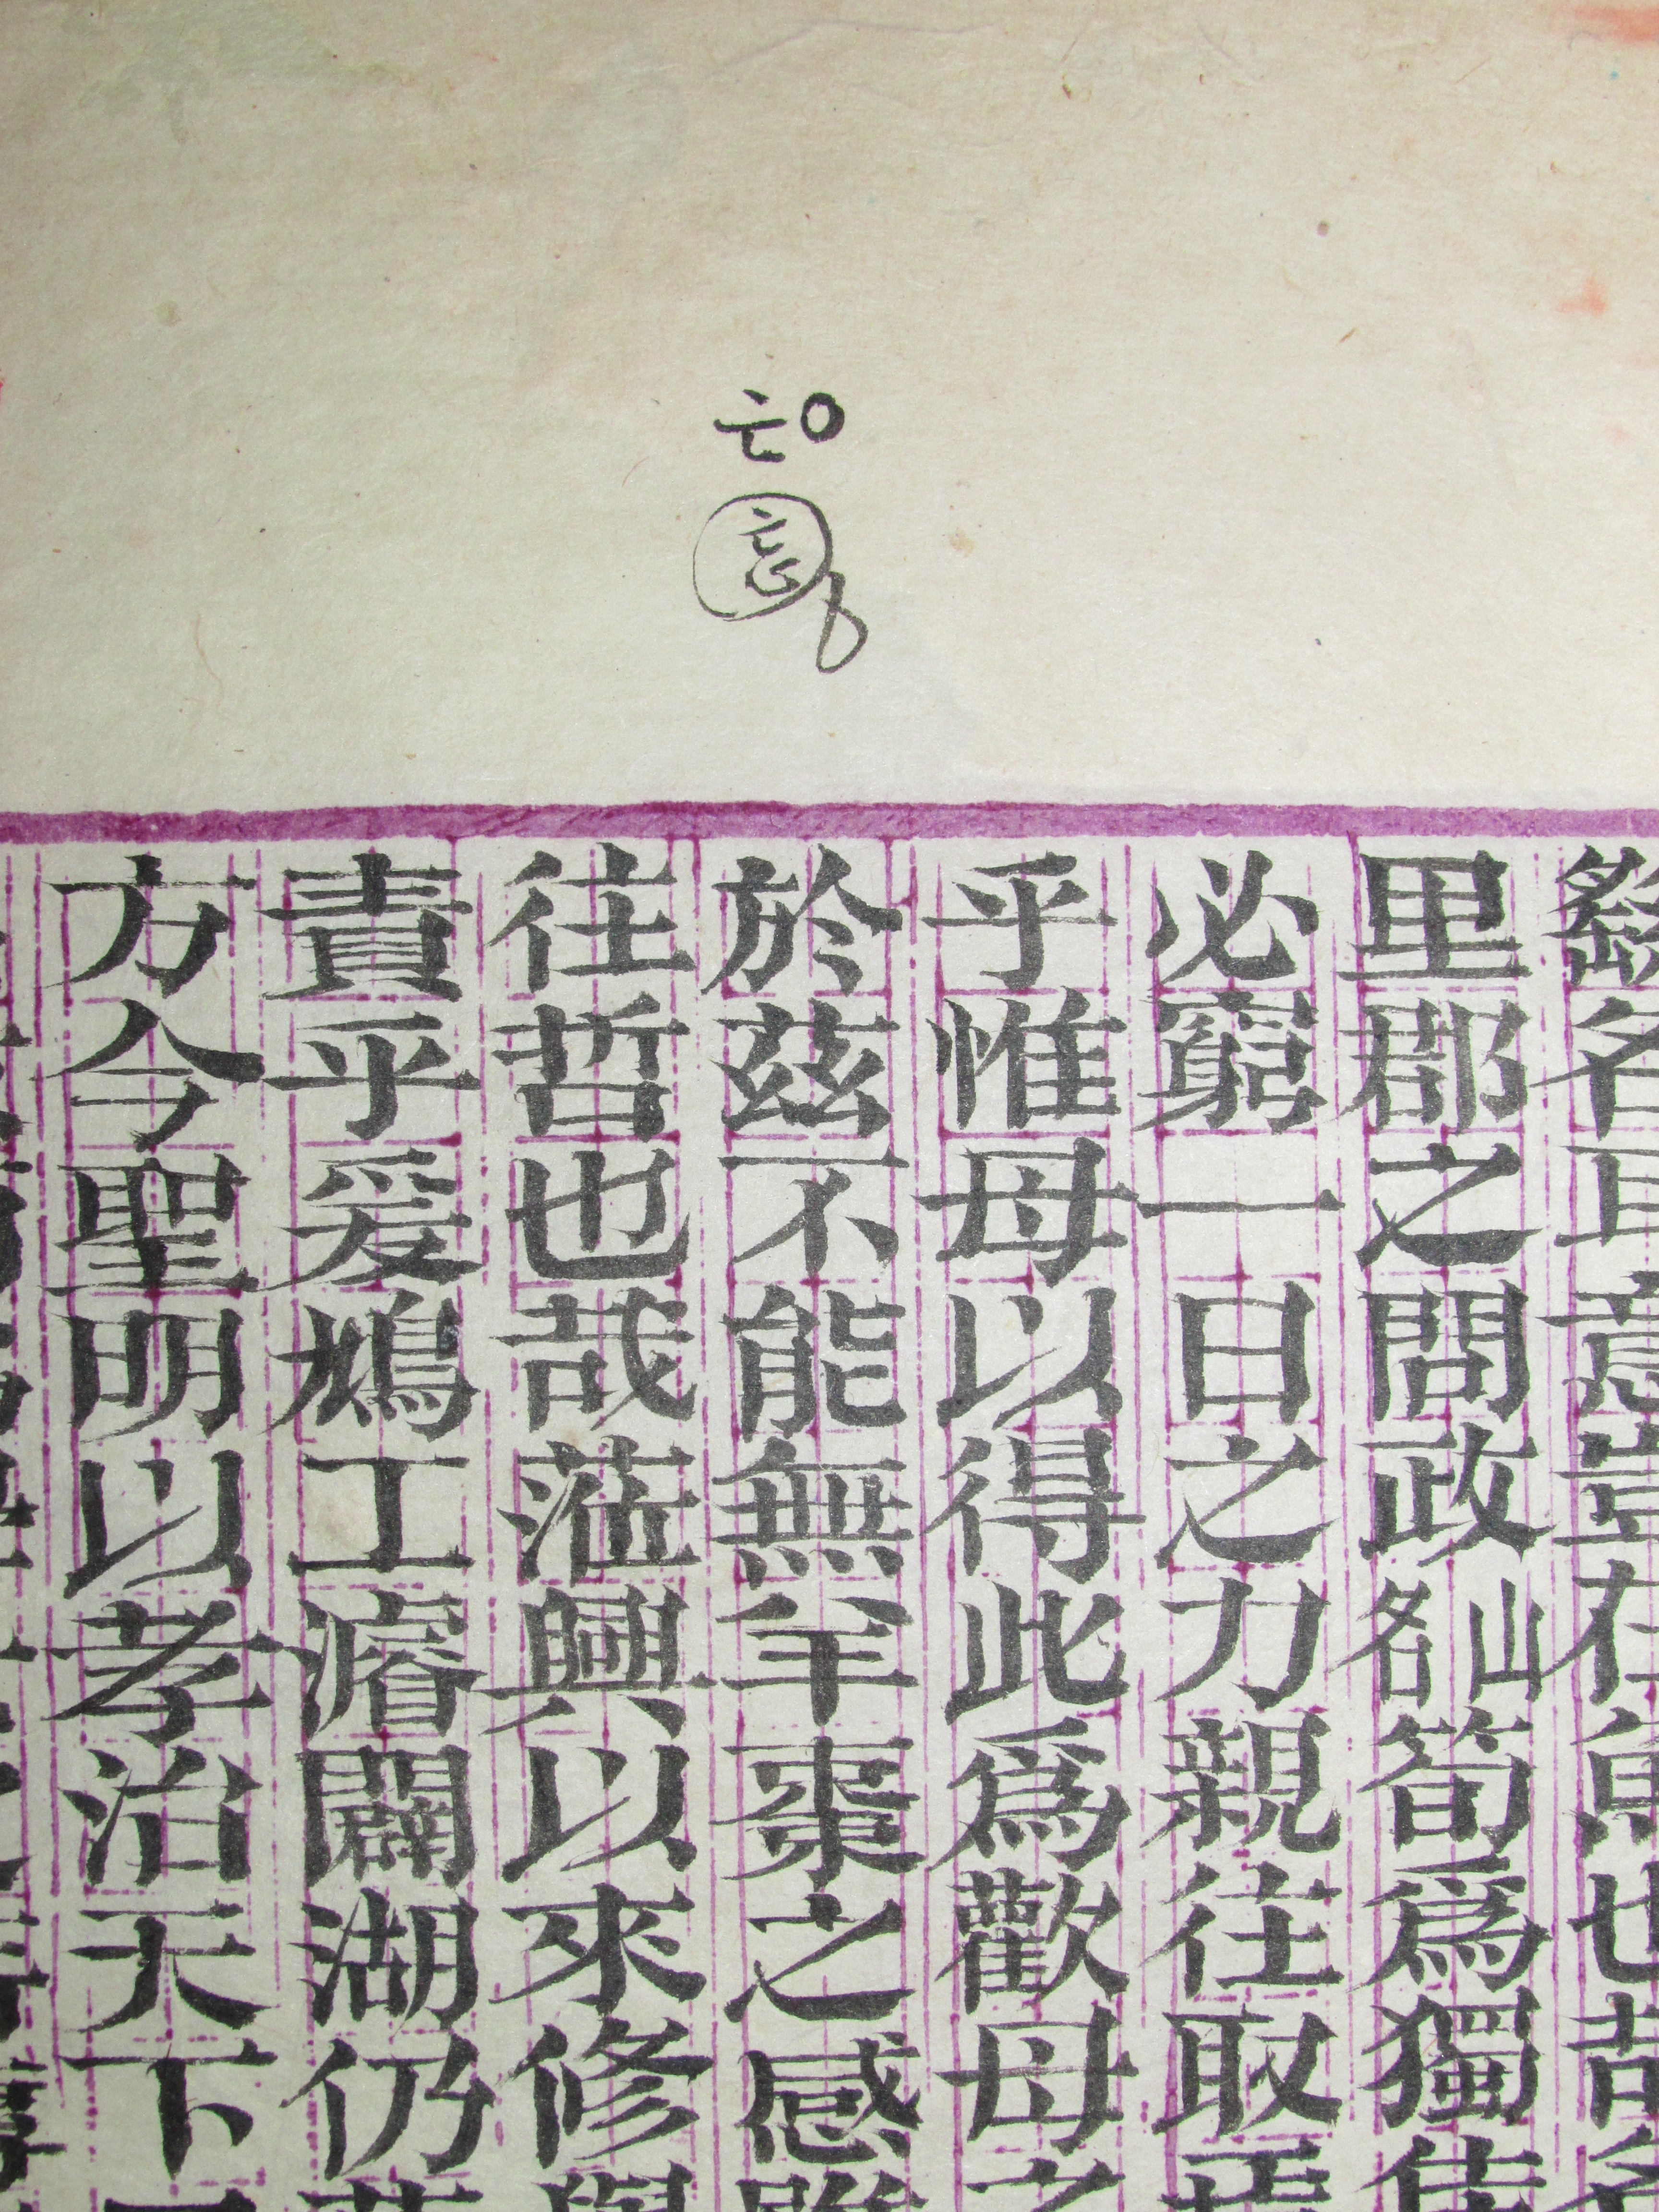 名且意豈在魚也哉
里郡之間政名山筍爲獨
必窮一日之力親往取
乎惟母以得此爲歡母
於玆不能無羊棗之感
往哲也哉蒞興以來修
責乎爰鳩工濬闢湖仍
方今聖明以孝治天下